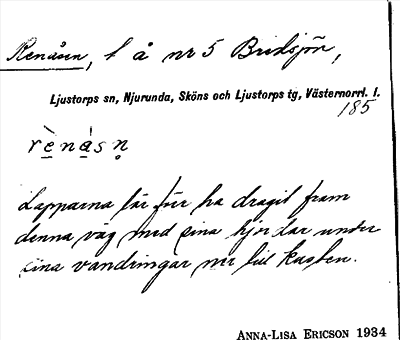 Renåsen, t å nr 5 Bredsjön,
Ljustorps sn, Njurunda, Sköns och Ljustorps tg, Västernorrl. l.
185
rènàsn̥
Lapparna lär förr ha dragit fram
denna väg med sina hjordar under
sina vandringar ner till kusten.
ANNA-LISA ERICSON 1934